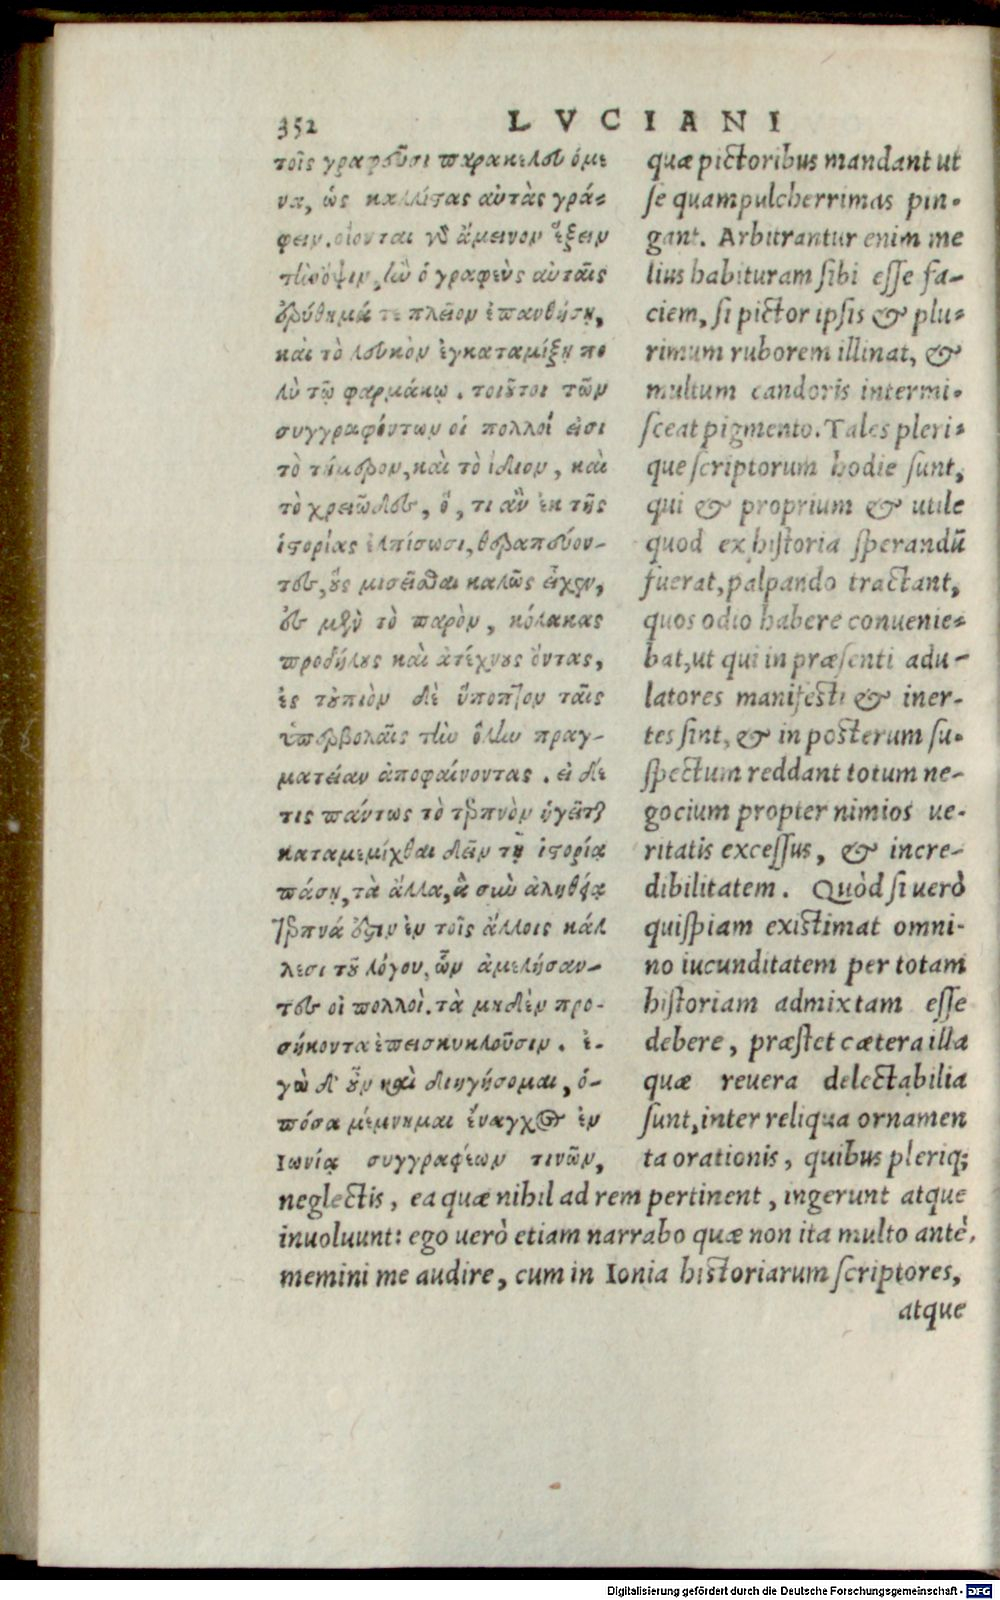 352 LVCIANI
τοῖς γραφεῦσι παρακελευόμε
να, ὡς καλλίστας αὐτὰς γρά-
φειν. οἴονται γὰρ ἄμεινον ἕξειν
τὴν ὄψιν, ἢν ὁ γραφεὺς αὐταῖς
ἐρύθημά τε πλεῖον ἐπανθήσῃ,
καὶ τὸ λευκὸν ἐγκαταμίξῃ πο
λὺ τῷ φαρμάκῳ. τοιοῦτοι τῶν
συγγραφόντων οἱ πολλοί εἰσι
τὸ τήμερον, καὶ τὸ ἴδιον, καὶ
τὸ χρειῶδες, ὅ, τι ἂν ἐκ τῆς
ἱστορίας ἐλπίσωσι, θεραπεύον-
τες, οὓς μισεῖσθαι καλῶς εἶχεν,
ἐς μὲν τὸ παρὸν, κόλακας
προδήλους καὶ ἀτέχνους ὄντας,
ἐς τοὐπιὸν δὲ ὕποπτον ταῖς
ὑπερβολαῖς τὴν ὅλην πραγ-
ματείαν ἀποφαίνοντας. εἰ δέ
τις πάντως τὸ τερπνὸν ἡγεῖται
καταμεμίχθαι δεῖν τῇ ἱστορίᾳ
πάσῃ, τὰ ἄλλα, ἃ σὺν ἀληθείᾳ
τερπνά ἐστιν ἐν τοῖς ἄλλοις κάλ
λεσι τοῦ λόγου, ὧν ἀμελήσαν-
τες οἱ πολλοὶ. τὰ μηδὲν προ-
σήκοντα ἐπεισκυκλοῦσιν. ἐ-
γὼ δ' οὖν καὶ διηγήσομαι, ὁ-
πόσα μέμνημαι ἔναγχος ἐν
Ιωνίᾳ συγγραφέων τινῶν,
quæ pictoribus mandant ut
se quampulcherrimas pin-
gant. Arbitrantur enim me
lius habituram sibi esse fa-
ciem, si pictor ipsis & plu-
rimum ruborem illinat, &
multum candoris intermi-
sceat pigmento. Tales pleri-
que scriptorum hodie sunt,
qui & proprium & utile
quod ex historia sperandũ
fuerat, palpando tractant,
quos odio habere conuenie-
bat, ut qui in præsenti adu-
latores manifesti & iner-
tes sint, & in posterum su-
spectum reddant totum ne-
gocium propter nimios ue-
ritatis excessus, & incre-
dibilitatem. Quòd si uerò
quispiam existimat omni-
no iucunditatem per totam
historiam admixtam esse
debere, præstet cætera illa
quæ reuera delectabilia
sunt, inter reliqua ornamen
ta orationis, quibus pleriq;
neglectis, ea quæ nihil ad rem pertinent, ingerunt atque
inuoluunt: ego uerò etiam narrabo quæ non ita multo antè,
memini me audire, cum in Ionia historiarum scriptores,
atque
Digitalisierung gefördert durch die Deutsche Forschungsgemeinschaft - DFG